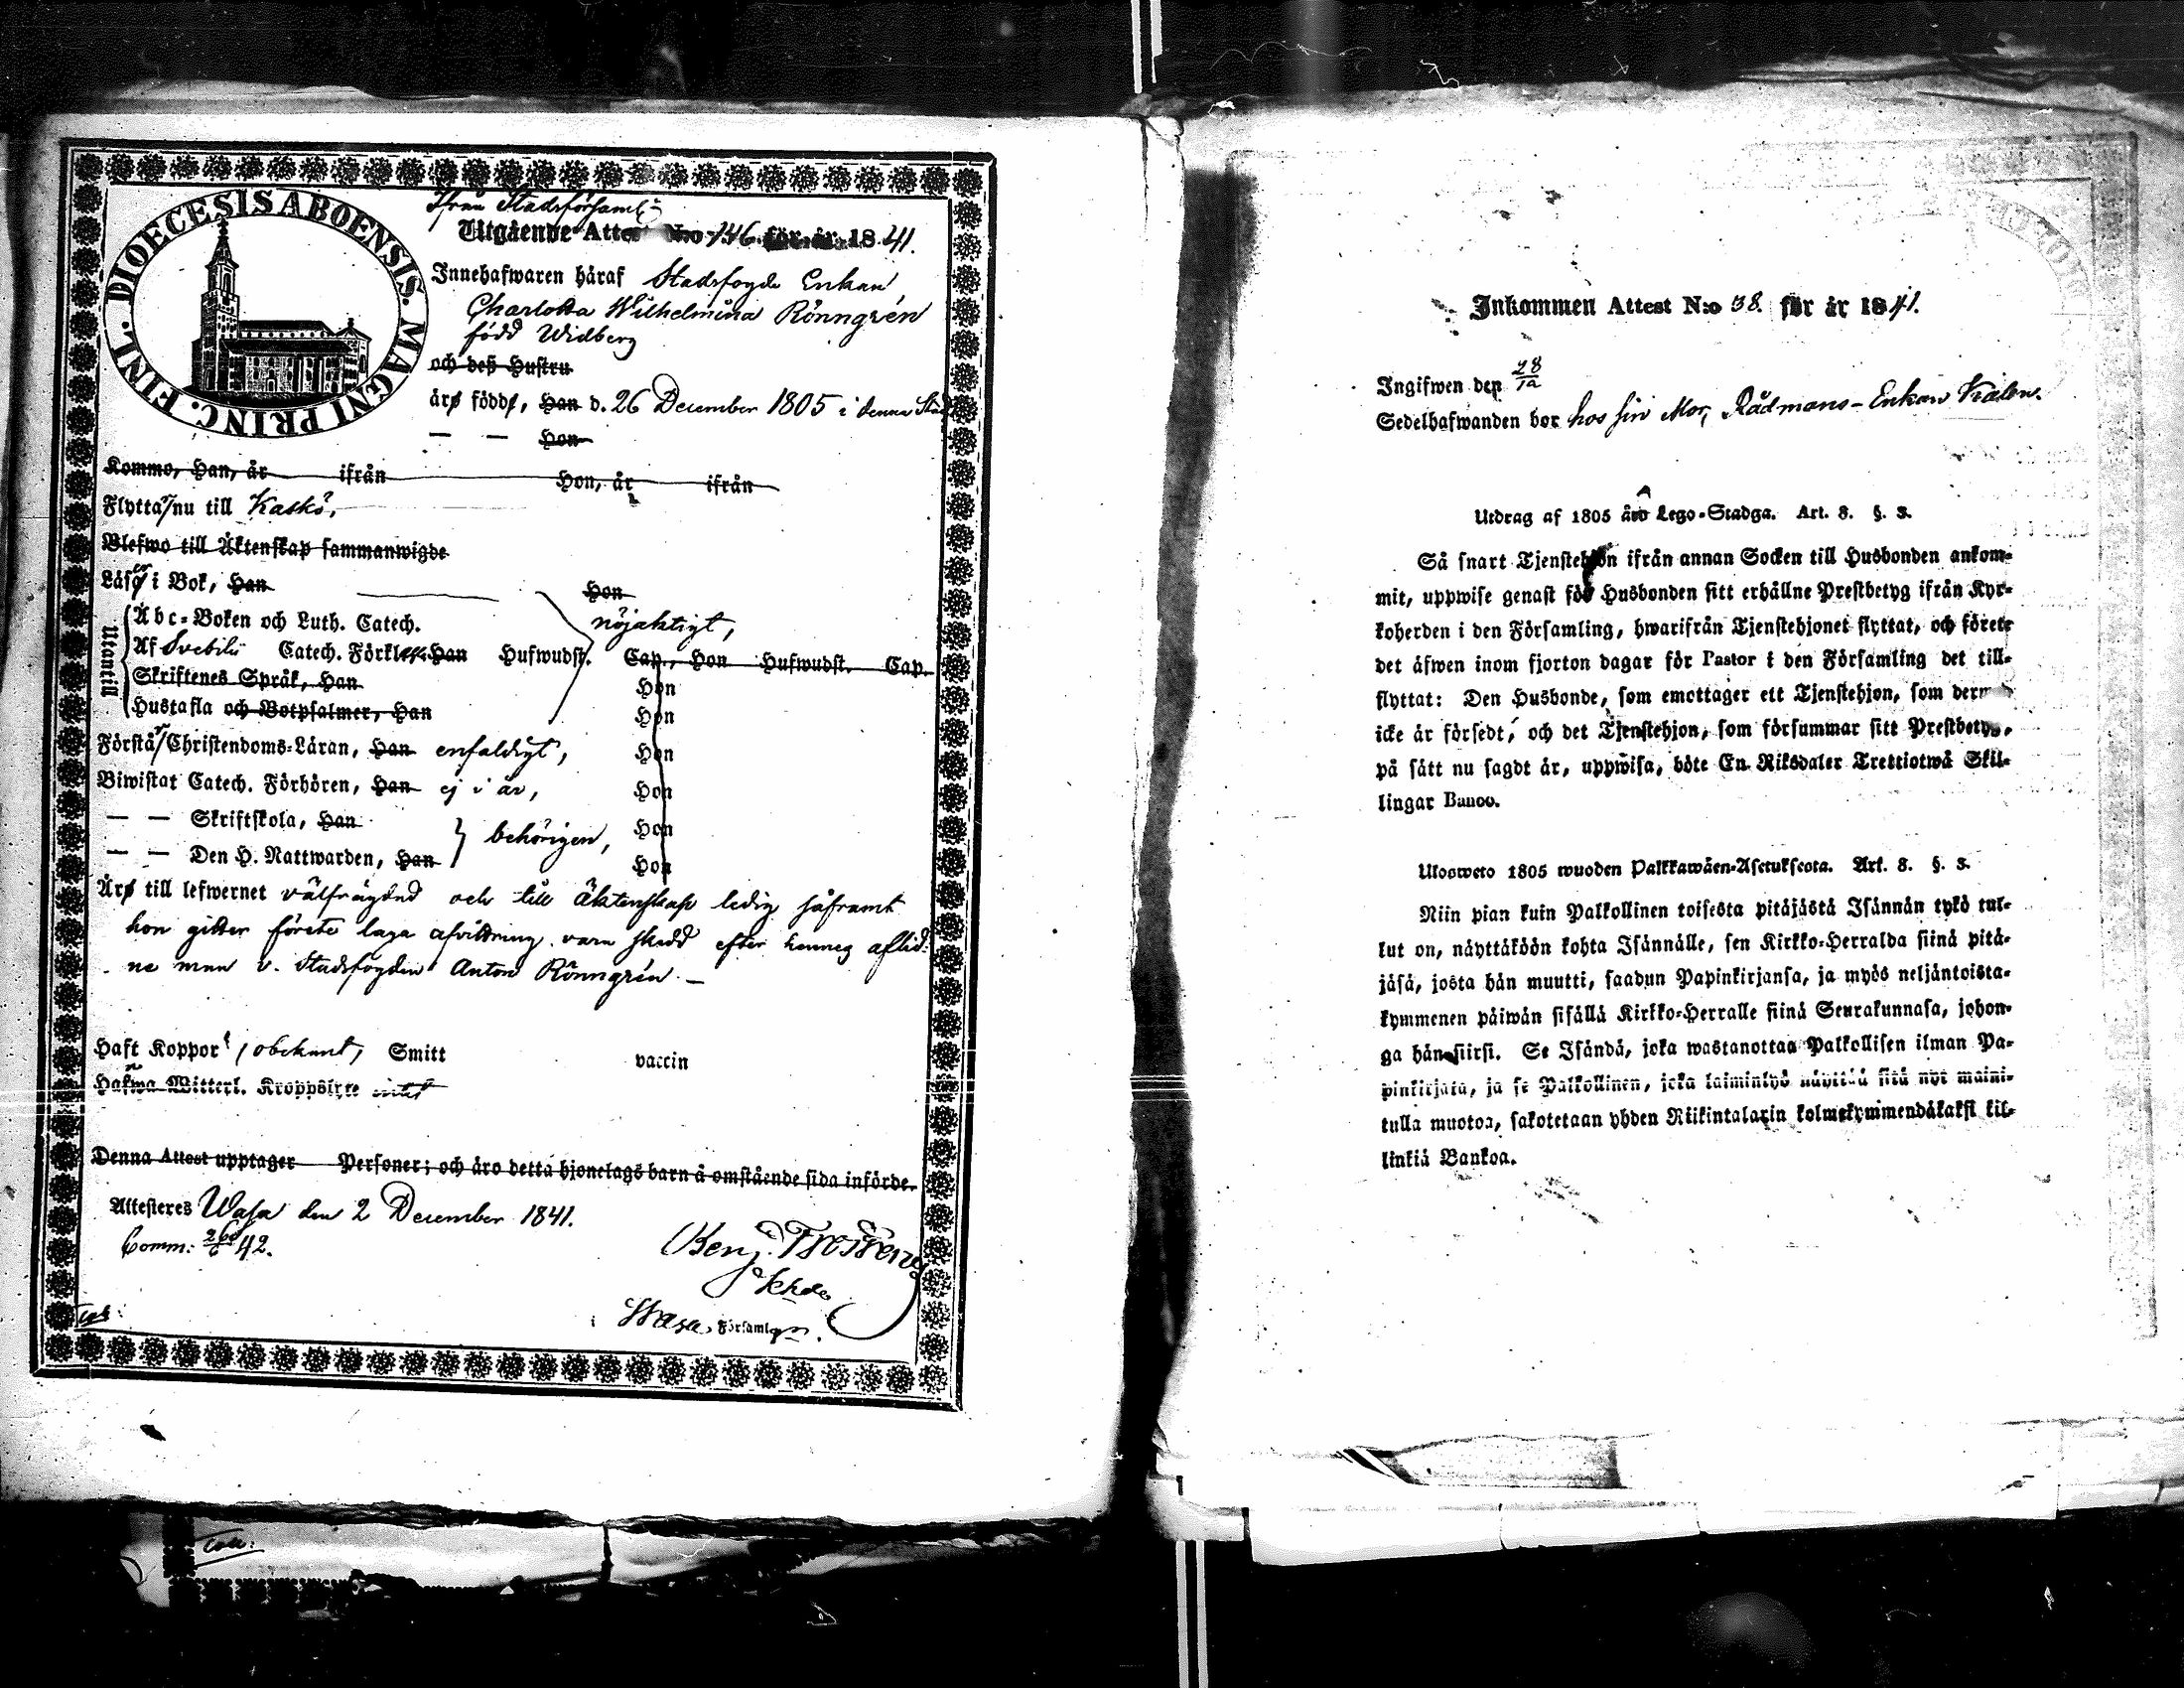 DIOECESIS ABOENSIS. MAGNI PRINC. FINL.
Ifrån Stadsförsaml:
Utgående Attest N:o 146 för år 1841.
Innehafwaren håraf Stadsfogde Enkan
Charlotta Wilhelmina Rönngrén
född Widberg
och deß Hustru
åro födde, Han d. 26 December 1805 i denna Stad
— — Hon
Kommo, Han, år ifrån Hon, år ifrån
Flyttar nu till Kaskö,
Blefwo till Äktenskap sammanwigde
Låser i Bok, Han Hon
Utantill
Abc-Boken och Luth. Catech. nöjaktigt,
Af Svebilii Catech. Förkl. Han Hufwudst. Cap., Hon Hufwudst. Cap.
Skriftenes Språk, Han Hon
Hustafla och Botpsalmer, Han Hon
Förstår Christendoms-Låran, Han enfaldigt, Hon
Biwistat Catech. Förhören, Han ej i år, Hon
— — Skriftskola, Han Hon
— — Den H. Nattwarden, Han behörigen, Hon
Äro till lefwernet välfrägdad och till äktenskap ledig såframt
hon gitter förete laga afvittring vara skedd efter hennes aflid-
ne man v. Stadsfogden Anton Rönngrén. —
Haft Koppor, obekant, Smitt vaccin
Hafwa Witterl. Kroppslyte intet
Denna Attest upptager Personer; och åro detta hjonelags barn å omstående sida införde.
Attesteres Wasa den 2 December 1841.
Comm: 42.
Benj.
Wasa Församl
Inkommen Attest N:o 38. för år 1841.
Ingifwen den 28/12
Sedelhafwanden bor hos sin Mor, Rådmans-Enkan
Utdrag af 1805 års Lego-Stadga. Art. 8. §. 3.
Så snart Tjenstehjon ifrån annan Socken till Husbonden ankom-
mit, uppwise genast för Husbonden sitt erhållne Prestbetyg ifrån Kyr-
koherden i den Församling, hwarifrån Tjenstehjonet flyttat, och förete
det åfwen inom fjorton dagar för Pastor i den Församling det till-
flyttat: Den Husbonde, som emottager ett Tjenstehjon, som dermed
icke år försedt, och det Tjenstehjon, som försummar sitt Prestbetyg,
på sått nu sagdt år, uppwisa, böte En Riksdaler Trettiotwå Skil-
lingar Banco.
Ulosweto 1805 wuoden Palkkawåen-Asetuksesta. Art. 8. §. 3.
Niin pian kuin Palkollinen toisesta pitåjåstå Isånnån tykö tul-
lut on, nåyttåköön kohta Isånnålle, sen Kirkko-Herralda siinå pitå-
jåså, josta hån muutti, saadun Papinkirjansa, ja myös neljåntoista-
kymmenen påiwån sisållå Kirkko-Herralle siinå Seurakunnasa, johon-
ga hån siirsi. Se Isåndå, joka wastanottaa Palkollisen ilman Pa-
pinkirjata, ja se Palkollinen, joka laiminlyö nåyttåå sitå nyt maini-
tulla muotoa, sakotetaan yhden Riikintalarin kolmekymmendåkaksi kil-
linkiå Bankoa.